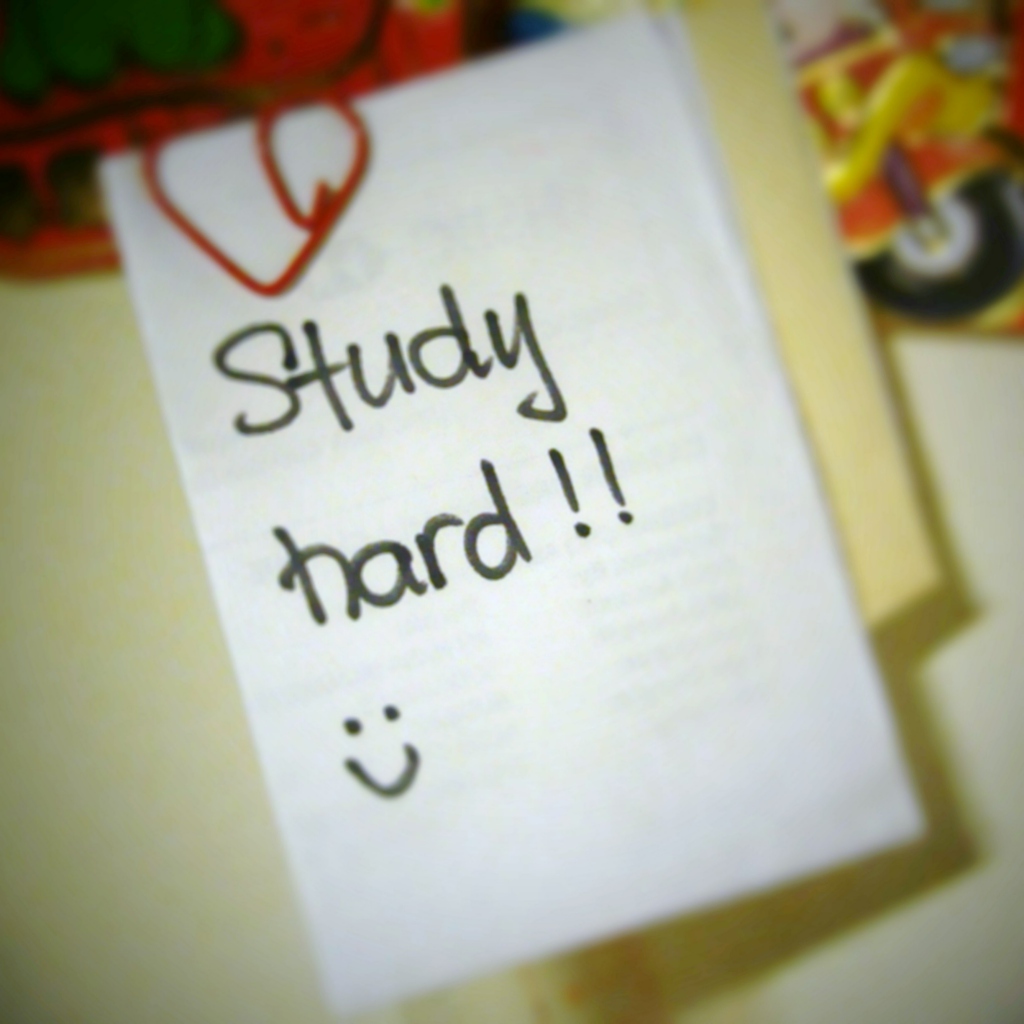 Study
hard!!